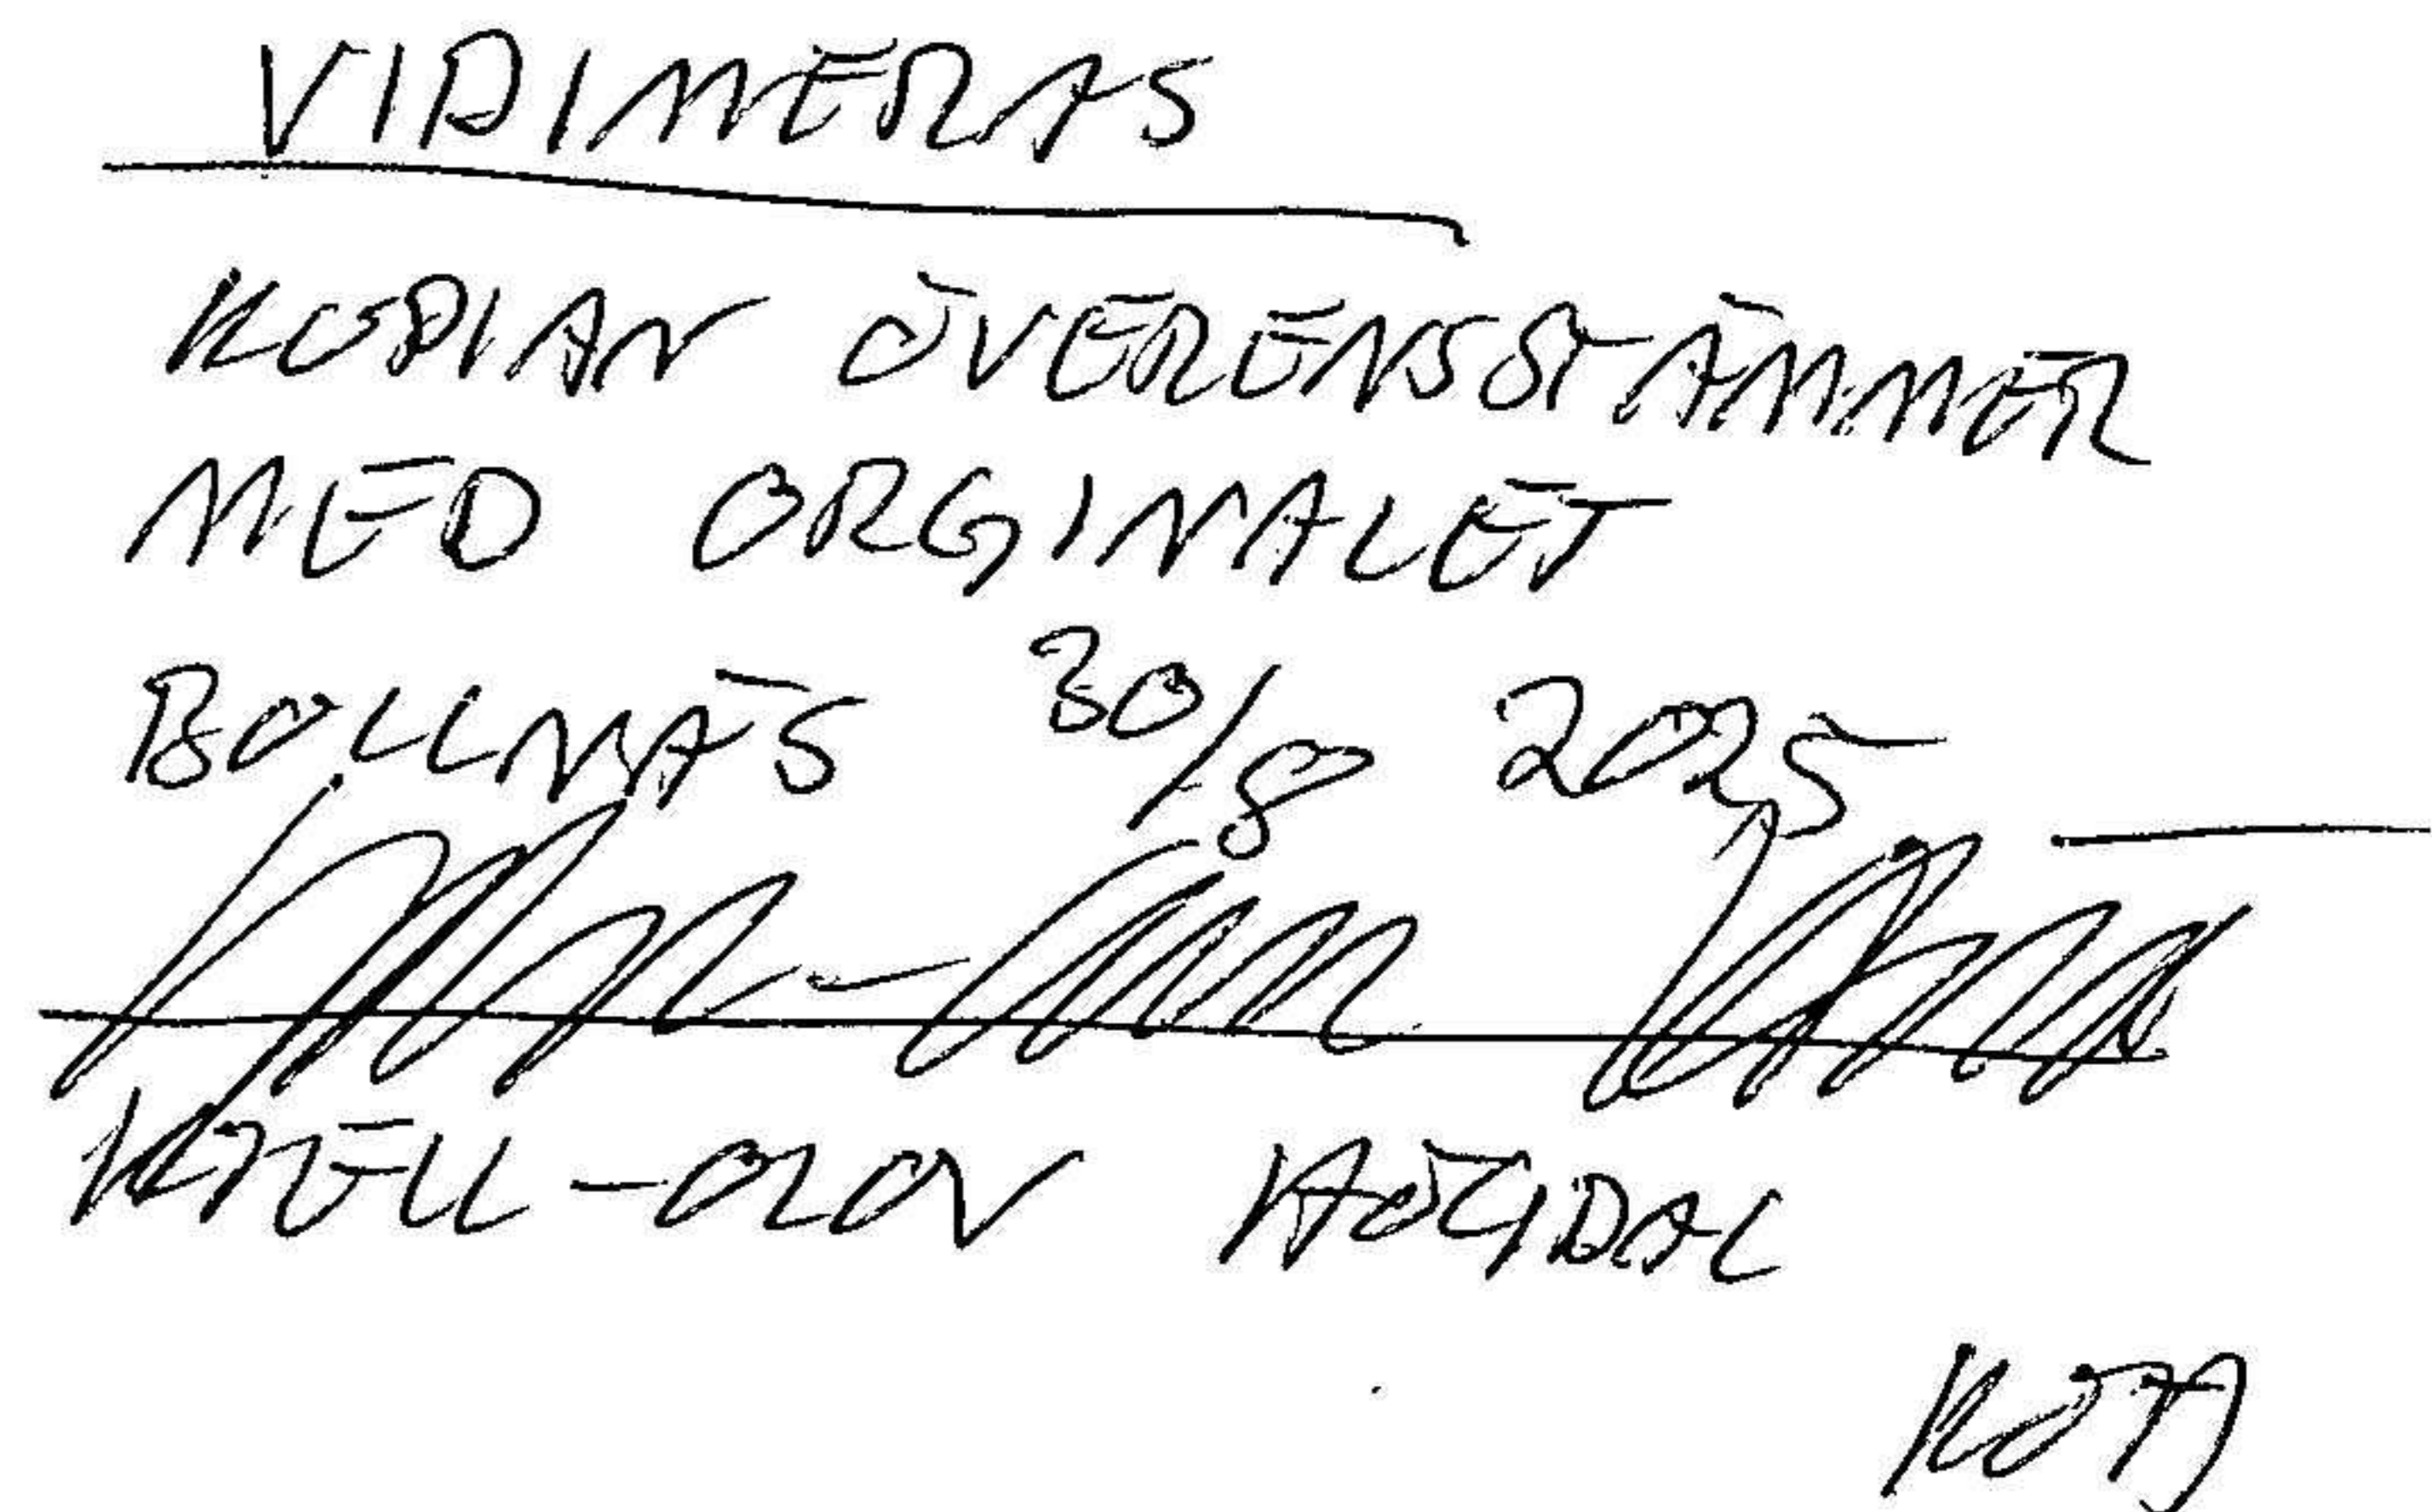 VIDIMERAS
KOPIAN ÖVERENSSTÄMMER
MED ORGINALET
BOLLNÄS 30/8 2025
KJELL-OLOV HÖGDAL